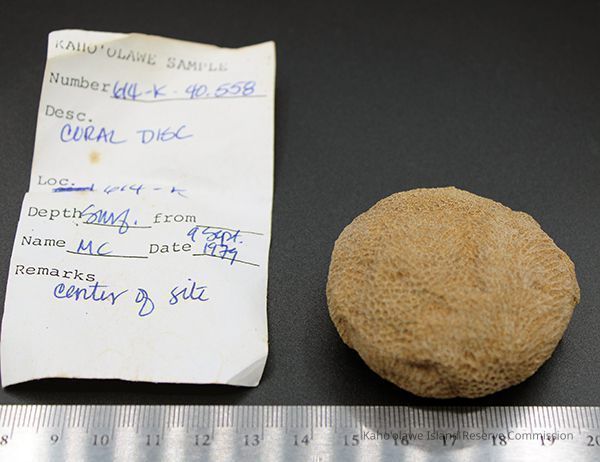 KAHO'OLAWE SAMPLE
Number 614-K-40.558
Desc.
CORAL DISC
Loc. 614-K
Depth Surf. from
Name MC Date 9 Sept. 1979
Remarks
center of site
8 9 10 11 12 13 14 15 16 17 18 19 20
Kaho'olawe Island Reserve Commission